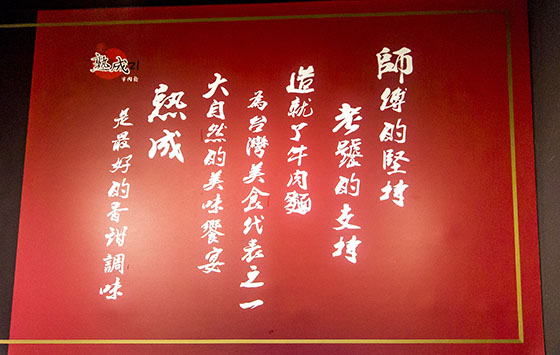 師傅的堅持
老饕的支持
造就了牛肉麵
為台灣美食代表之一
大自然的美味饗宴
熟成
是最好的香甜調味
熟成21
牛肉麵